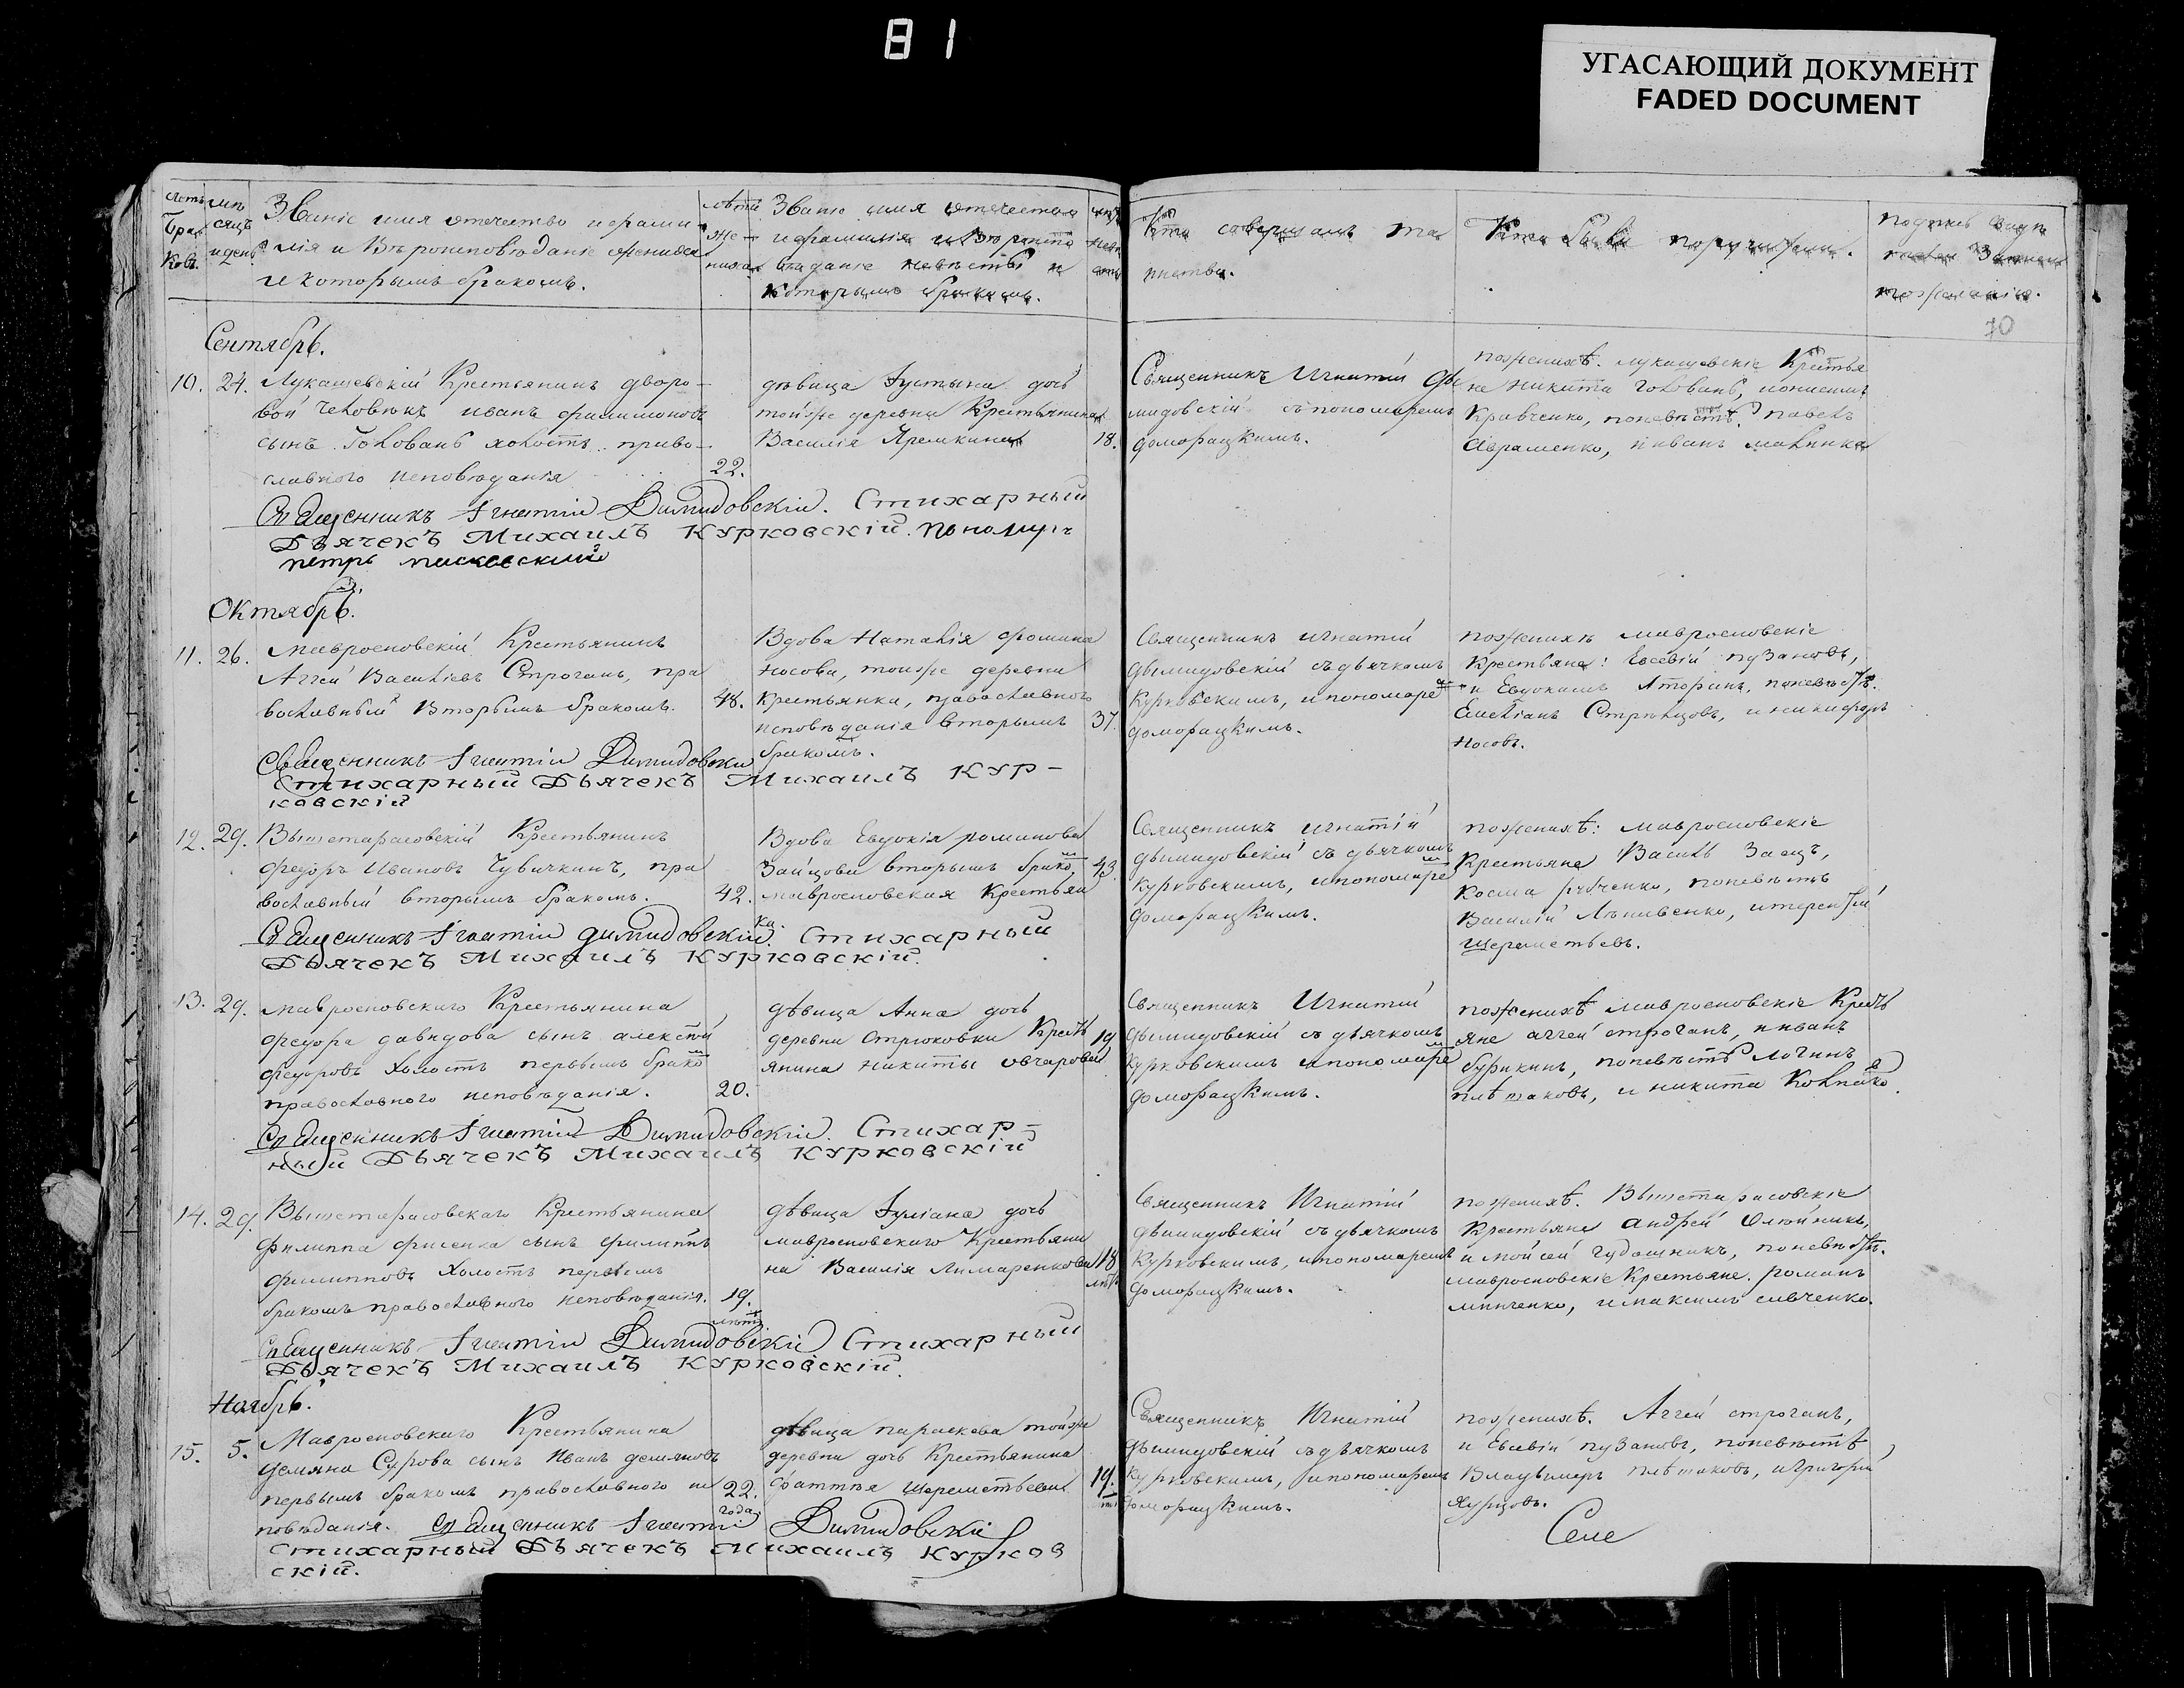 81
УГАСАЮЩИЙ ДОКУМЕНТ
FADED DOCUMENT
70
Званіе имя отечество и фами-
лія и Вѣроисповѣданіе жениха
и которымъ бракомъ.
Званіе имя отечество
и фамилія и Вѣроиспо
вѣданіе невѣсты и
которымъ бракомъ.
Кто совершалъ та
инства.
Кто были поручители.
Сентябрь.
10. 24. Лукашевскій Крестьянинъ дворо-
вой человѣкъ иванъ филимоновъ
сынъ Головань холостъ право-
славного исповѣданія 22.
дѣвица Іустына дочь
тойже деревни Крестьянина
Василія Яремкина 18.
Священникъ Игнатій Ди
мидовскій съ пономаремъ
доморацкимъ.
пожениху. лукашевскіе Крестья
не никита Головань,
Кравченко, поневѣстѣ павелъ
Авраменко, и иванъ малинка
Священникъ Игнатій Димидовскій. Стихарный
Дьячекъ Михаилъ Курковскій. пономарь
петръ
Октябрь.
11. 26. Мавросновскій Крестьянинъ
Аггей Васильевъ Строганъ, пра
вославный Вторымъ бракомъ. 48.
Вдова Наталія фомина
Носова, тойже деревни
Крестьянка, православного
исповѣданія вторымъ 37.
бракомъ.
Священникъ игнатій
дымидовскій съ дьячкомъ
Курковскимъ, и пономаре
доморацкимъ.
пожениху мавросновскіе
Крестьяне: Евсевій пузановъ,
и Евдокимъ поневѣстѣ.
Емеліанъ Стрѣльцовъ, и никифоръ
Носовъ.
Священникъ Игнатій Димидовскій
Стихарный Дьячекъ Михаилъ Кур-
ковскій
12. 29. Вышетарасовскій Крестьянинъ
федоръ Ивановъ Чубичкинъ, пра
вославный вторымъ бракомъ. 42.
Вдова Евдокія романова
Зайцова вторымъ брако, 43.
мавросновская Крестьян
ка.
Священникъ игнатій
дымидовскій съ дьячкомъ
Курковскимъ, и пономаре
доморацкимъ.
пожениху: мавросновскіе
Крестьяне Василь Заецъ,
Косма рябченко, поневѣстѣ
Василій Лѣпивенко, и терентій
Шереметьевъ.
Священникъ Игнатій димидовскій. Стихарный
Дьячекъ Михаилъ Курковскій.
13. 29. Мавросновского Крестьянина
федора давидова сынъ алексѣй
федоровъ Холостъ первымъ брако
православного исповѣданія. 20.
дѣвица Анна дочь
деревни Стрюковки Крест 19
янина никиты овчарова
Священникъ Игнатій
дымидовскій съ дьячкомъ
Курковскимъ и пономаре
доморацкимъ.
пожениху мавросновскіе Крест
яне аггей строганъ, и иванъ
бурикинъ, поневѣстѣ Логинъ
плѣшаковъ, и никита Колпако
Священникъ Игнатій Димидовскій. Стихар-
ный Дьячекъ Михаилъ Курковскій
14. 29. Вышетарасовского Крестьянина
филиппа фисенка сынъ филиппъ
филипповъ Холостъ первымъ
бракомъ православного исповѣданія. 19.
лѣтъ
дѣвица Іуліана дочь
мавросновского Крестьяни
на Василія Лимаренкова 18
лѣтъ
Священникъ Игнатій
дымидовскій съ дьячкомъ
Курковскимъ, и пономаремъ
доморацкимъ.
пожениху. Вышетарасовскіе
Крестьяне андрей олюйникъ,
и мойсей Чудошникъ, поневѣстѣ.
мавросновскіе Крестьяне. романъ
минченко, и максимъ сивченко.
Священникъ Игнатій Димидовскій Стихарный
Дьячекъ Михаилъ Курковскій.
Ноябрь.
15. 5. Мавросновского Крестьянина
демяна Сурова сынъ Иванъ демяновъ
первымъ бракомъ православного ис 22.
повѣданія. года
дѣвица параскева тойже
деревни дочь Крестьянина
Шереметьева 19.
Священникъ Игнатій
дымидовскій съ дьячкомъ
Курковскимъ, и пономаремъ
доморацкимъ.
пожениху. Аггей строганъ,
и Евсевій пузановъ, поневѣстѣ
Владымеръ плѣшаковъ, и григорій
Священникъ Игнатій Димидовскій
Стихарный Дьячекъ Михаилъ Курков
скій.